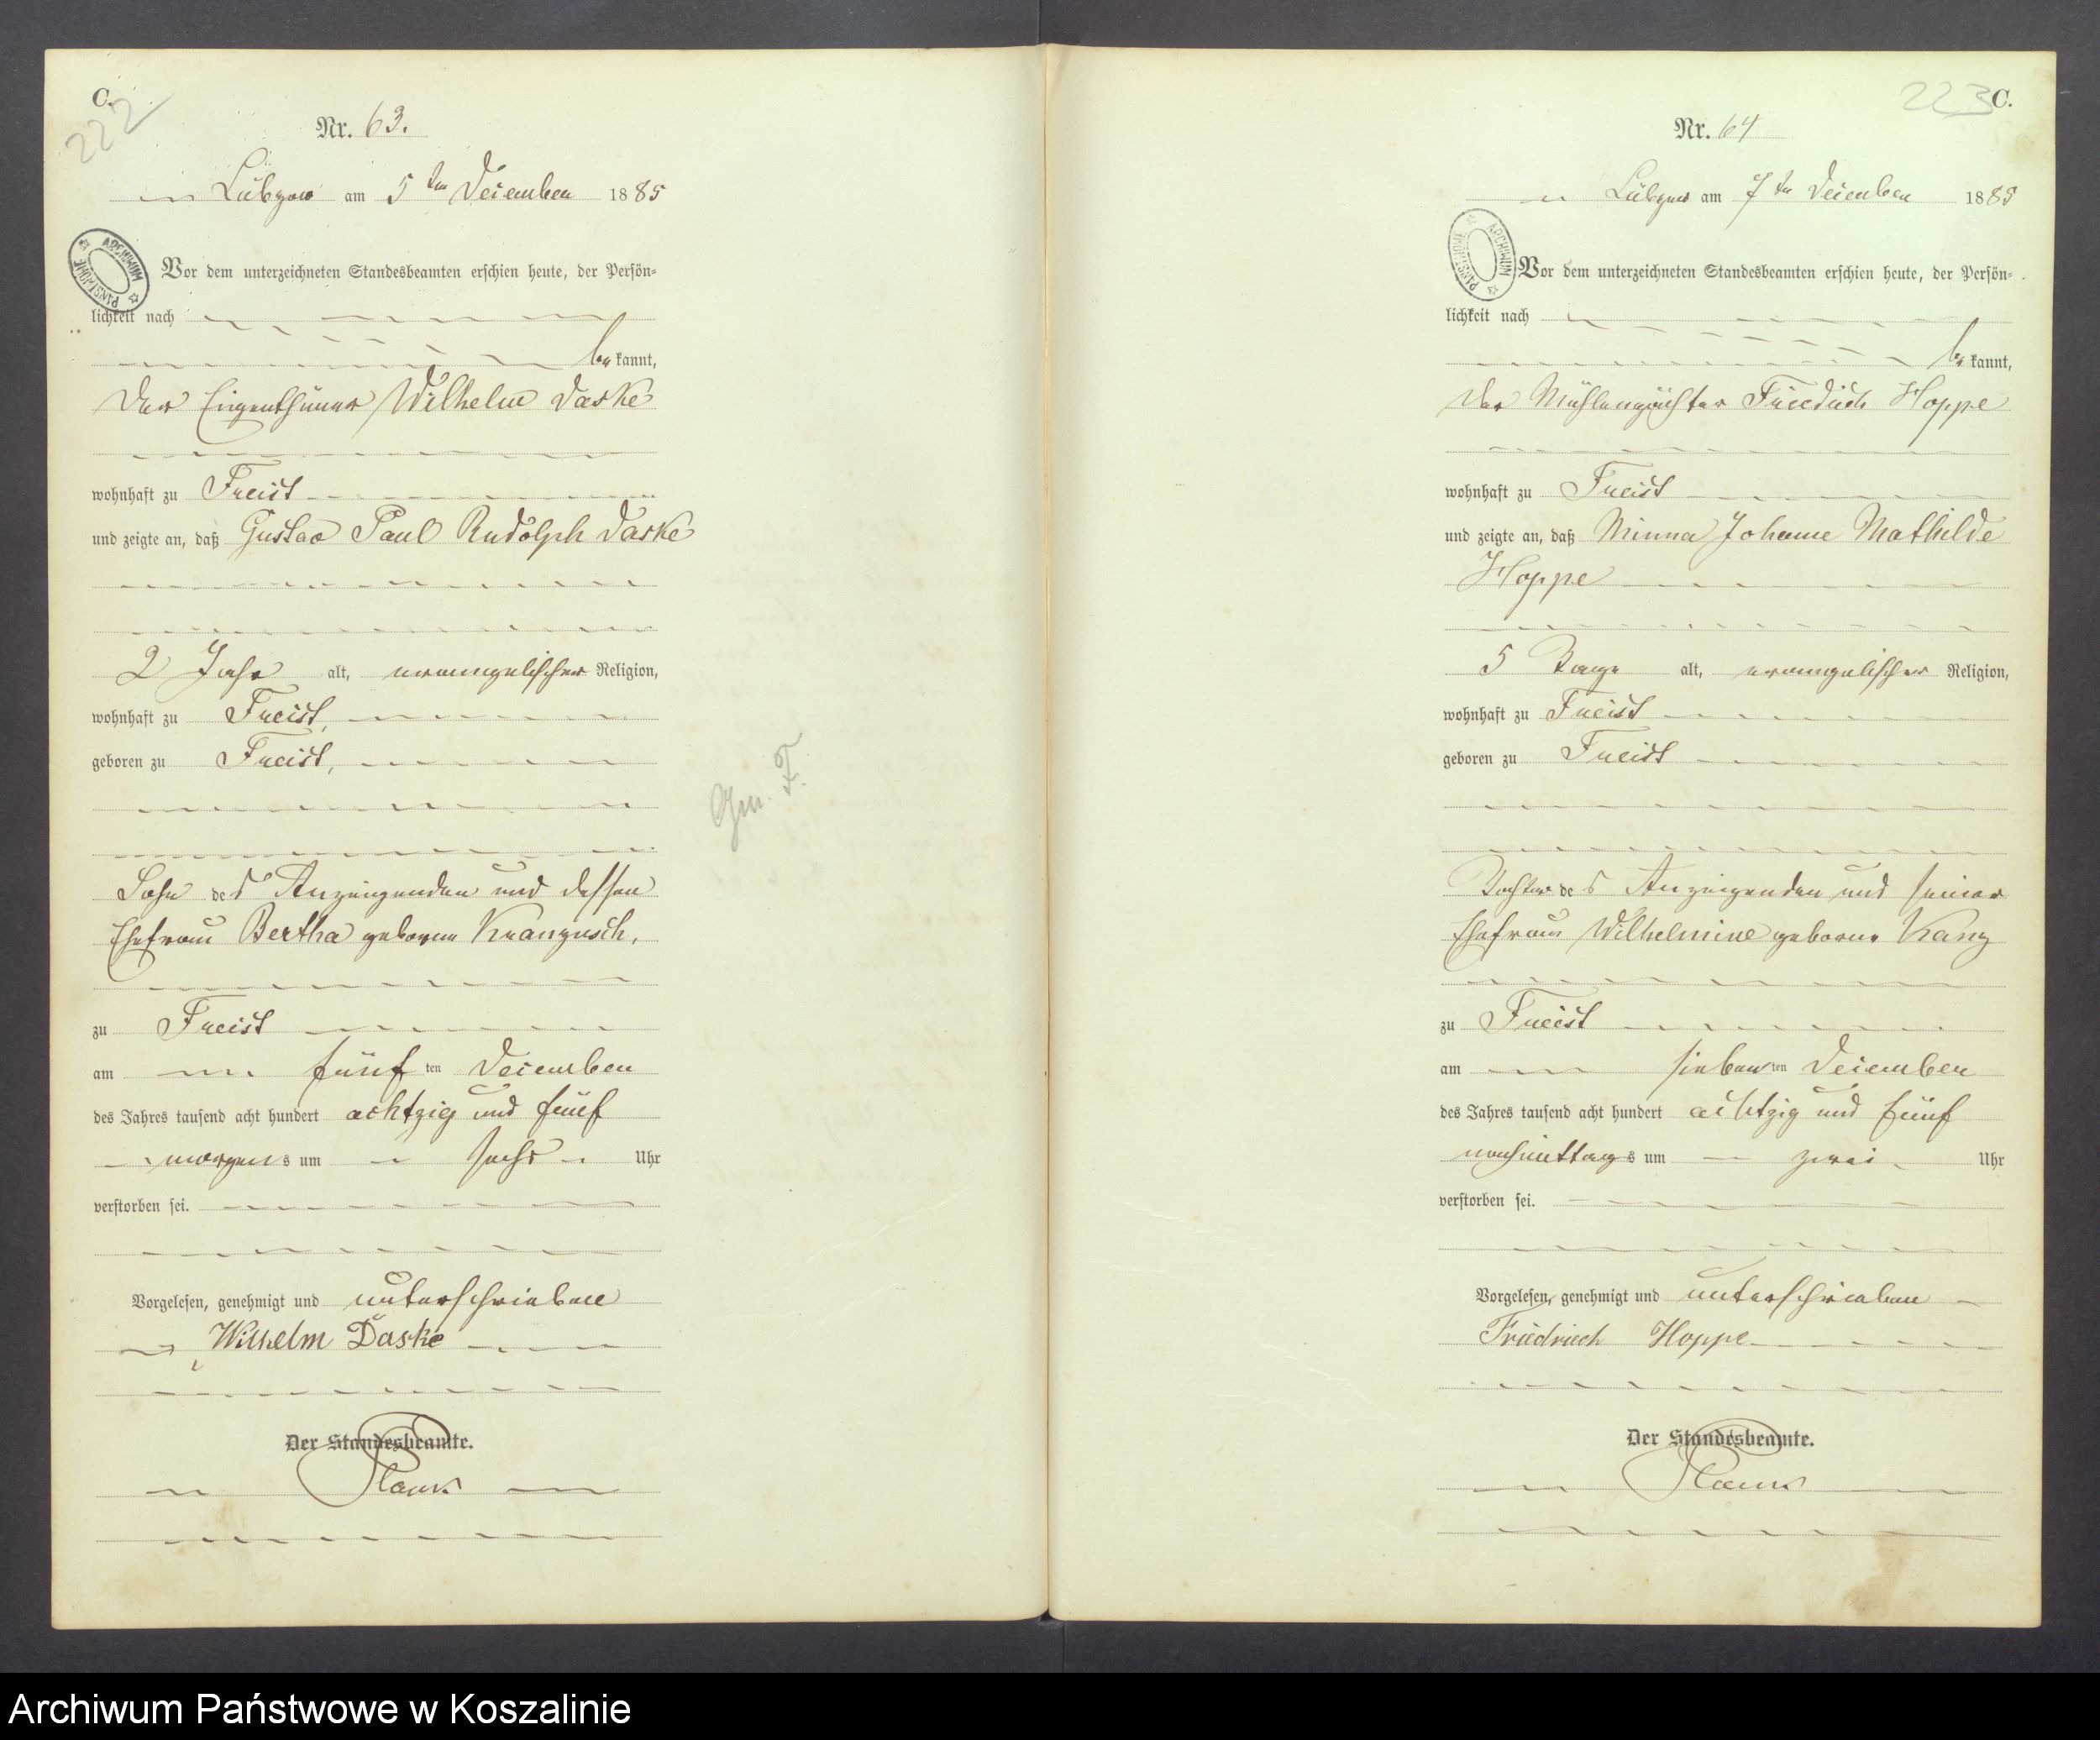 C.
222
Nr. 63.
Lübzow am 5ten December 1885
ARCHIWUM PAŃSTWOWE
Vor dem unterzeichneten Standesbeamten erschien heute, der Persön-
lichkeit nach
be kannt,
der Eigenthümer Wilhelm Daske
wohnhaft zu Freist
und zeigte an, daß Gustav Paul Rudolph Daske
2 Jahr alt, evangelischer Religion,
wohnhaft zu Freist,
geboren zu Freist,
Sohn des Anzeigenden und dessen
Ehefrau Bertha geborene Krangusch,
zu Freist
am fünf ten December
des Jahres tausend acht hundert achtzig und fünf
morgens um sechs Uhr
verstorben sei.
Vorgelesen, genehmigt und unterschrieben
Wilhelm Daske
Der Standesbeamte.
Gm. F.
223 C.
Nr. 64
Lübzow am 7ten December 1885
ARCHIWUM PAŃSTWOWE
Vor dem unterzeichneten Standesbeamten erschien heute, der Persön-
lichkeit nach
be kannt,
der Mühlenpächter Friedrich Hoppe
wohnhaft zu Freist
und zeigte an, daß Minna Johanne Mathilde
Hoppe
5 Tage alt, evangelischer Religion,
wohnhaft zu Freist
geboren zu Freist
Tochter des Anzeigenden und seiner
Ehefrau Wilhelmine geborne Kanz
zu Freist
am sieben ten December
des Jahres tausend acht hundert achtzig und fünf
nachmittags um zwei Uhr
verstorben sei.
Vorgelesen, genehmigt und unterschrieben
Friedriech Hoppe
Der Standesbeamte.
Archiwum Państwowe w Koszalinie